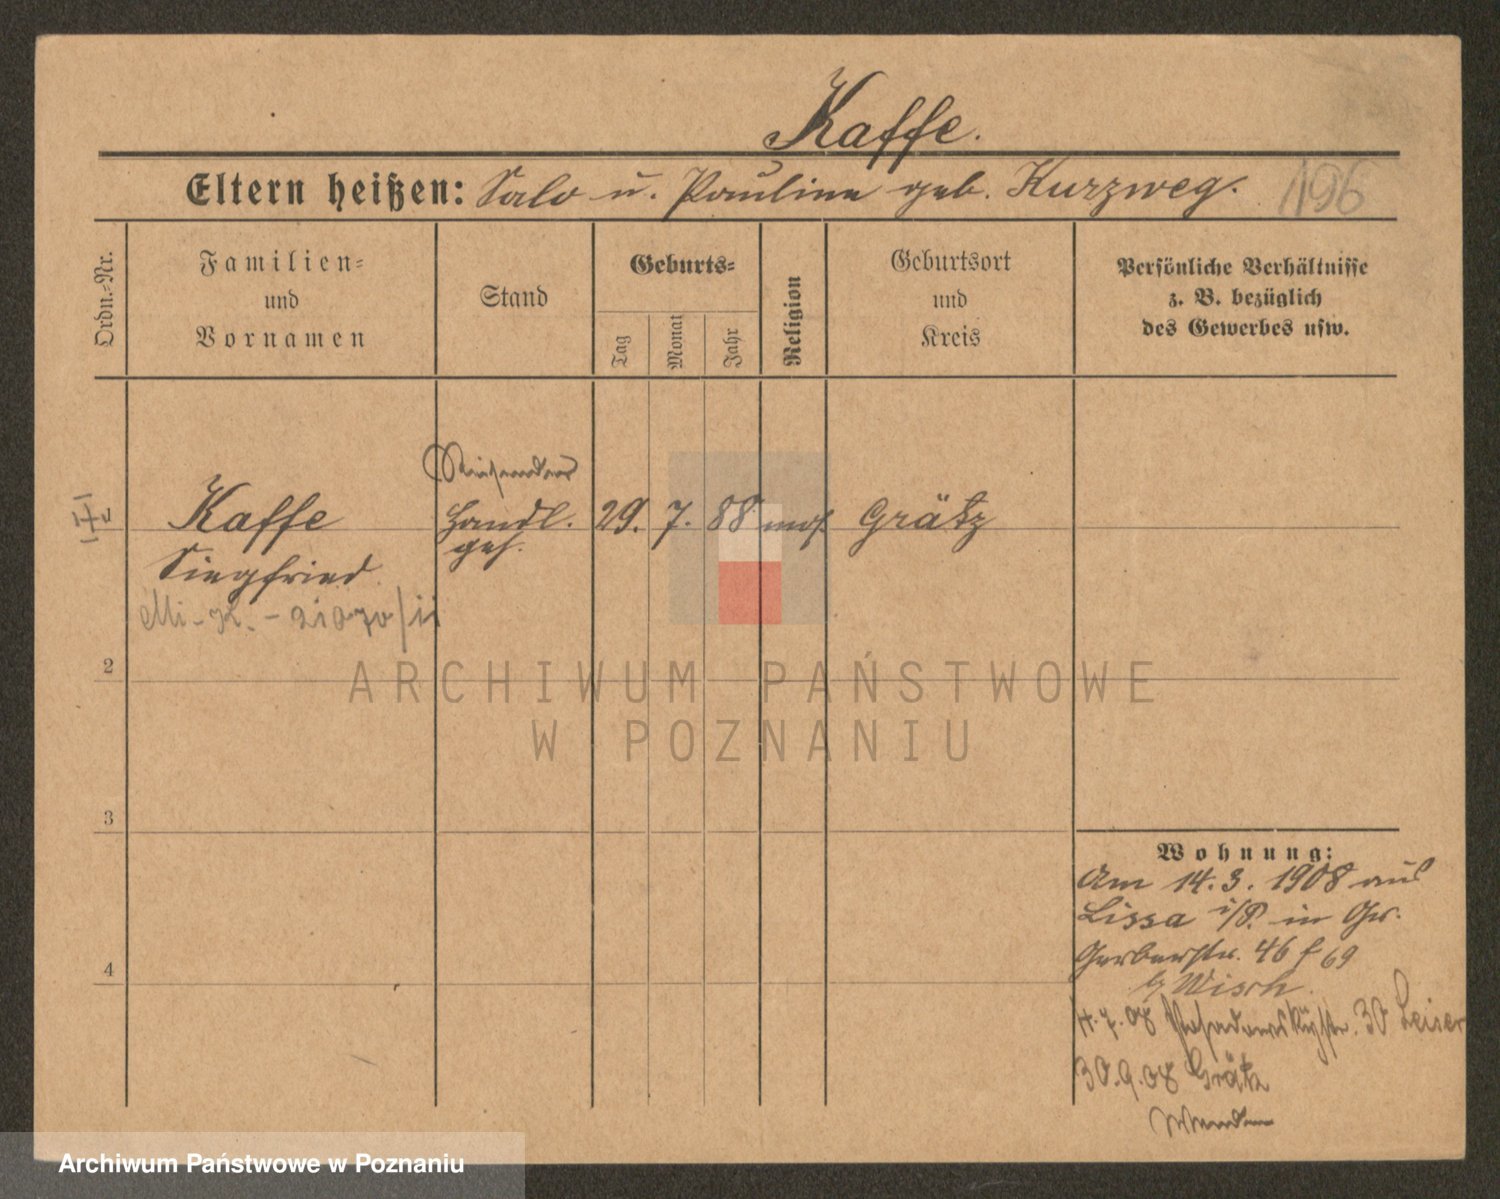 Kaffe.
Eltern heißen: Salo u. Pauline geb. Kurzweg.
196
Ordn.-Nr.
Familien-
und
Vornamen
Stand
Geburts-
Tag
Monat
Jahr
Religion
Geburtsort
und
Kreis
Persönliche Verhältnisse
z. B. bezüglich
des Gewerbes usw.
Reisender
Kaffe Handl. 29. 7. 88 mos. Grätz
geh.
Siegfried
Mi-K.-
2
ARCHIWUM PAŃSTWOWE
W POZNANIU
3
Wohnung:
Am 14.3.1908 aus
Lissa i/P. in Gr.
Gerberstr. 46 f 69
b/ Wisch.
4
.7.08 Posadowskystr. 30 Leiser
30.9.08 Grätz
Archiwum Państwowe w Poznaniu